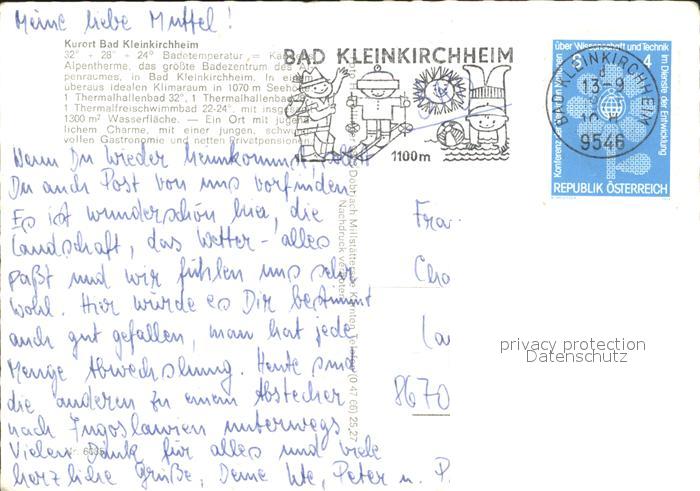 Meine liebe Muttel!
Kurort Bad Kleinkirchheim
32° + 28° + 24° Badetemperatur = 
Alpentherme, das größte Badezentrum des
penraumes, in Bad Kleinkirchheim. In einem
überaus idealen Klimaraum in 1070 m Seehöhe
1 Thermalhallenbad 32°, 1 Thermalhallenbad
1 Thermalfreischwimmbad 22-24°, mit insgesamt
1300 m² Wasserfläche. — Ein Ort mit
lichem Charme, mit einer jungen,
vollen Gastronomie und netten Privatpensionen
BAD KLEINKIRCHHEIM
1100m
BAD KLEINKIRCHHEIM
13-9
9546
Konferenz der
über Wissenschaft und Technik
im Dienste der Entwicklung
S 4
REPUBLIK ÖSTERREICH
Wenn Du wieder heimkommst, sollst
Du auch Post von uns vorfinden.
Es ist wunderschön hier, die
Landschaft, das Wetter - alles
paßt und wir fühlen uns sehr
wohl. Hier würde es Dir bestimmt
auch gut gefallen, man hat jede
Menge Abwechslung. Heute sind
die anderen zu einem Abstecher
nach Jugoslawien unterwegs.
Vielen Dank für alles und viele
herzliche Grüße, Deine Ute, Peter u. P.
Nachdruck verboten
Frau
8670
privacy protection
Datenschutz